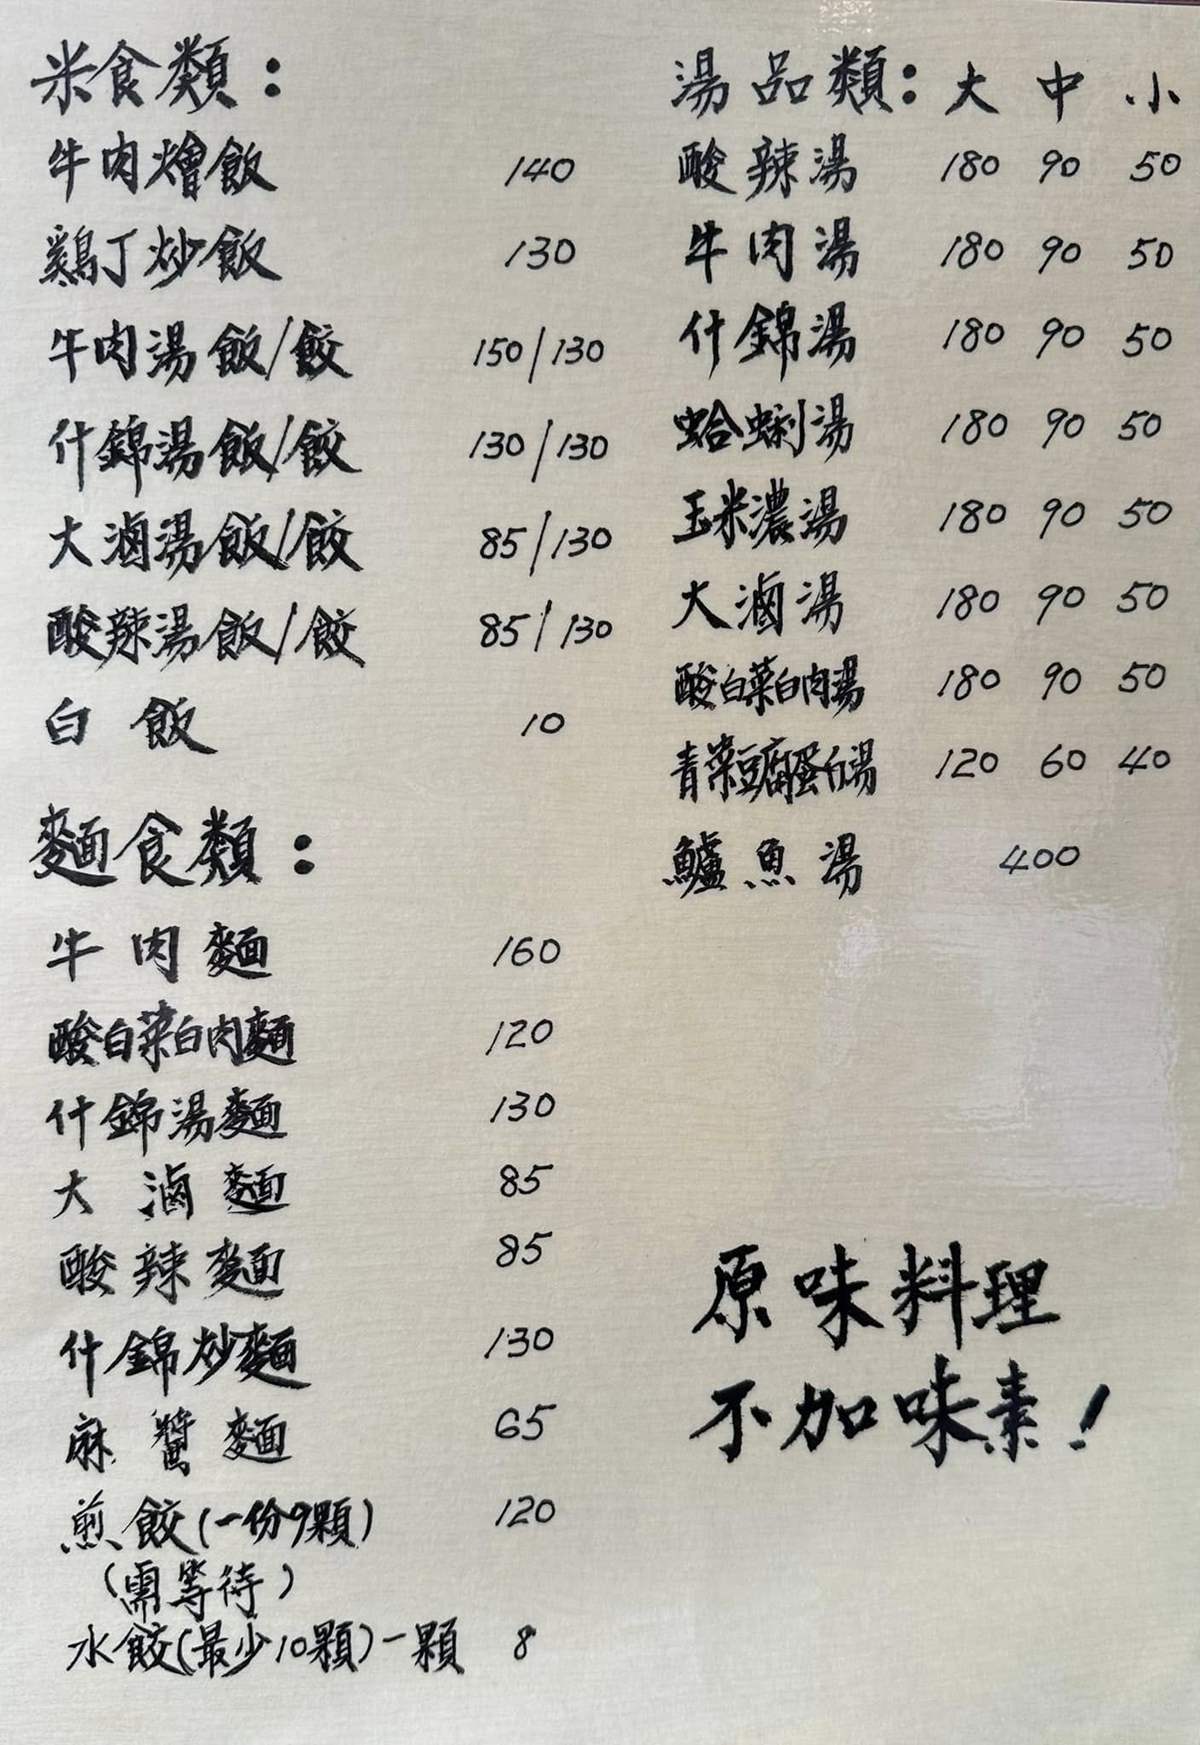 米食類：
牛肉燴飯 140
鷄丁炒飯 130
牛肉湯飯/餃 150/130
什錦湯飯/餃 130/130
大滷湯飯/餃 85/130
酸辣湯飯/餃 85/130
白飯 10
麵食類：
牛肉麵 160
酸白菜白肉麵 120
什錦湯麵 130
大滷麵 85
酸辣麵 85
什錦炒麵 130
麻醬麵 65
煎餃(一份9顆) 120
(需等待)
水餃(最少10顆)一顆 8
湯品類：大 中 小
酸辣湯 180 90 50
牛肉湯 180 90 50
什錦湯 180 90 50
蛤蜊湯 180 90 50
玉米濃湯 180 90 50
大滷湯 180 90 50
酸白菜白肉湯 180 90 50
青菜豆腐蛋白湯 120 60 40
鱸魚湯 400
原味料理
不加味素！